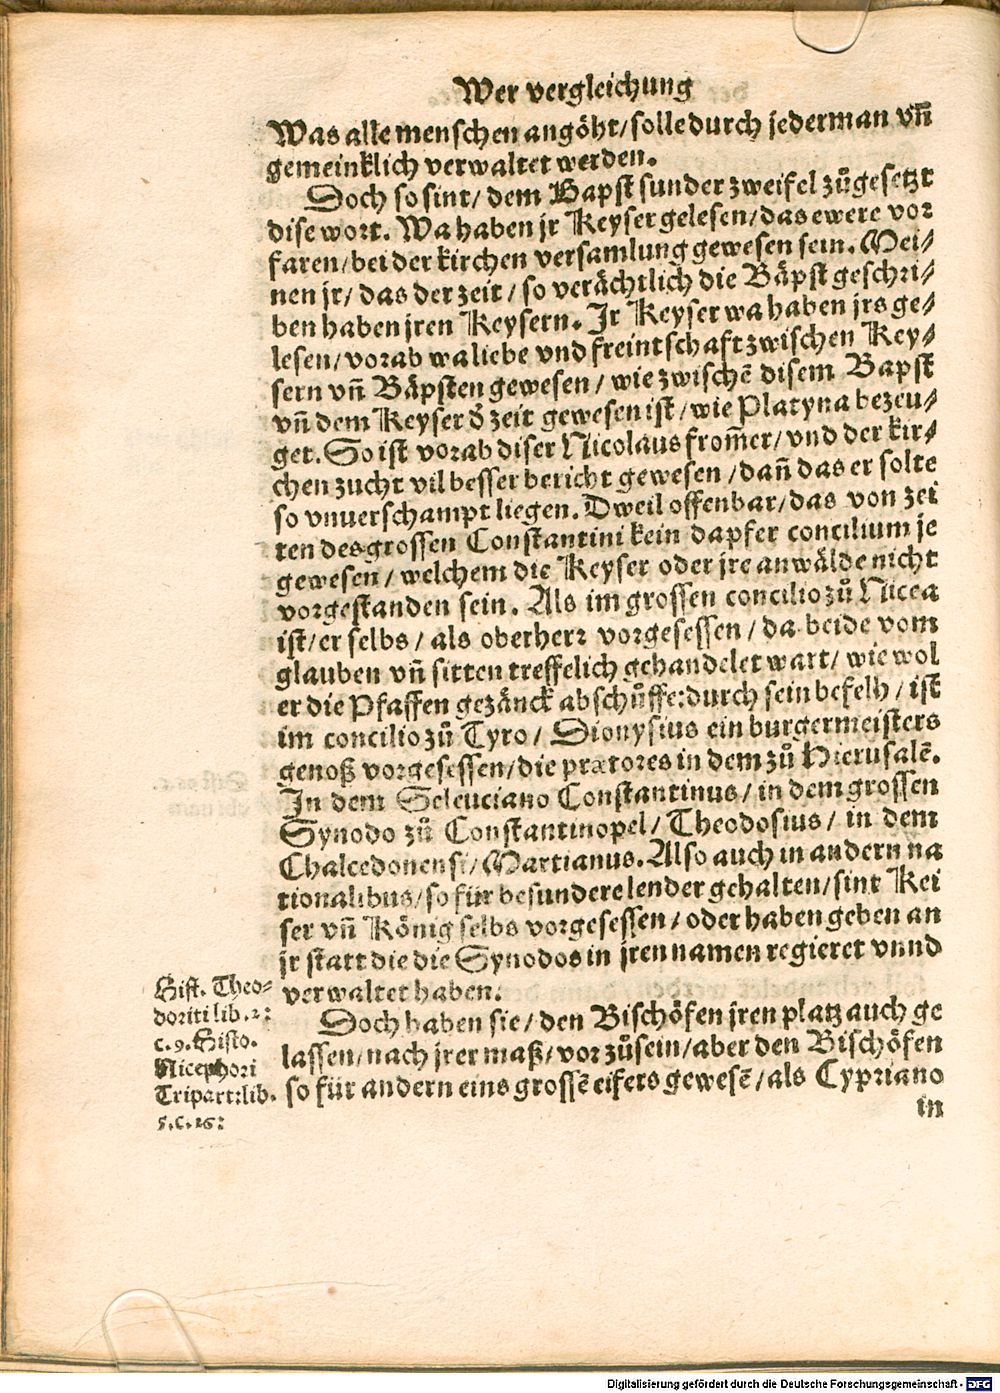 Wer vergleichung
Was alle menschen angöht/ solle durch jederman vñ
gemeinklich verwaltet werden.
Doch so sint/ dem Bapst sunder zweifel zůgesetzt
dise wort. Wa haben jr Keyser gelesen/ das ewere vor
faren/ bei der kirchen versamlung gewesen sein. Mei/
nen jr/ das der zeit/ so verächtlich die Bäpst geschri/
ben haben jren Keysern. Ir Keyser wa haben jrs ge/
lesen/ vorab wa liebe vnd freintschaft zwischen Key/
sern vñ Bäpsten gewesen/ wie zwischẽ disem Bapst
vñ dem Keyser ð zeit gewesen ist/ wie Platyna bezeu/
get. So ist vorab diser Nicolaus from̃er/ vnd der kir/
chen zucht vil besser bericht gewesen/ dañ das er solte
so vnuerschampt liegen. Dweil offenbar/ das von zei
ten des grossen Constantini kein dapfer concilium je
gewesen/ welchem die Keyser oder jre anwälde nicht
vorgestanden sein. Als im grossen concilio zů Nicea
ist/ er selbs/ als oberherr vorgesessen/ da beide vom
glauben vñ sitten treffelich gehandelet wart/ wie wol
er die Pfaffen gezänck abschůffe: durch sein befelh/ ist
im concilio zů Tyro/ Dionysius ein burgermeisters
genoß vorgesessen/ die prætores in dem zů Hierusalẽ.
In dem Seleuciano Constantinus/ in dem grossen
Synodo zů Constantinopel/ Theodosius/ in dem
Chalcedonensi/ Martianus. Also auch in andern na
tionalibus/ so für besundere lender gehalten/ sint Kei
ser vñ König selbs vorgesessen/ oder haben geben an
jr statt die die Synodos in jren namen regieret vnnd
verwaltet haben.
Doch haben sie/ den Bischöfen jren platz auch ge
lassen/ nach jrer maß/ vor zůsein/ aber den Bischöfen
so für andern eins grossẽ eifers gewesẽ/ als Cypriano
in
Hist. Theo-
doriti lib. 2:
c. 9. Histo.
Nicephori
Tripart: lib.
5. c. 26:
Digitalisierung gefördert durch die Deutsche Forschungsgemeinschaft - DFG